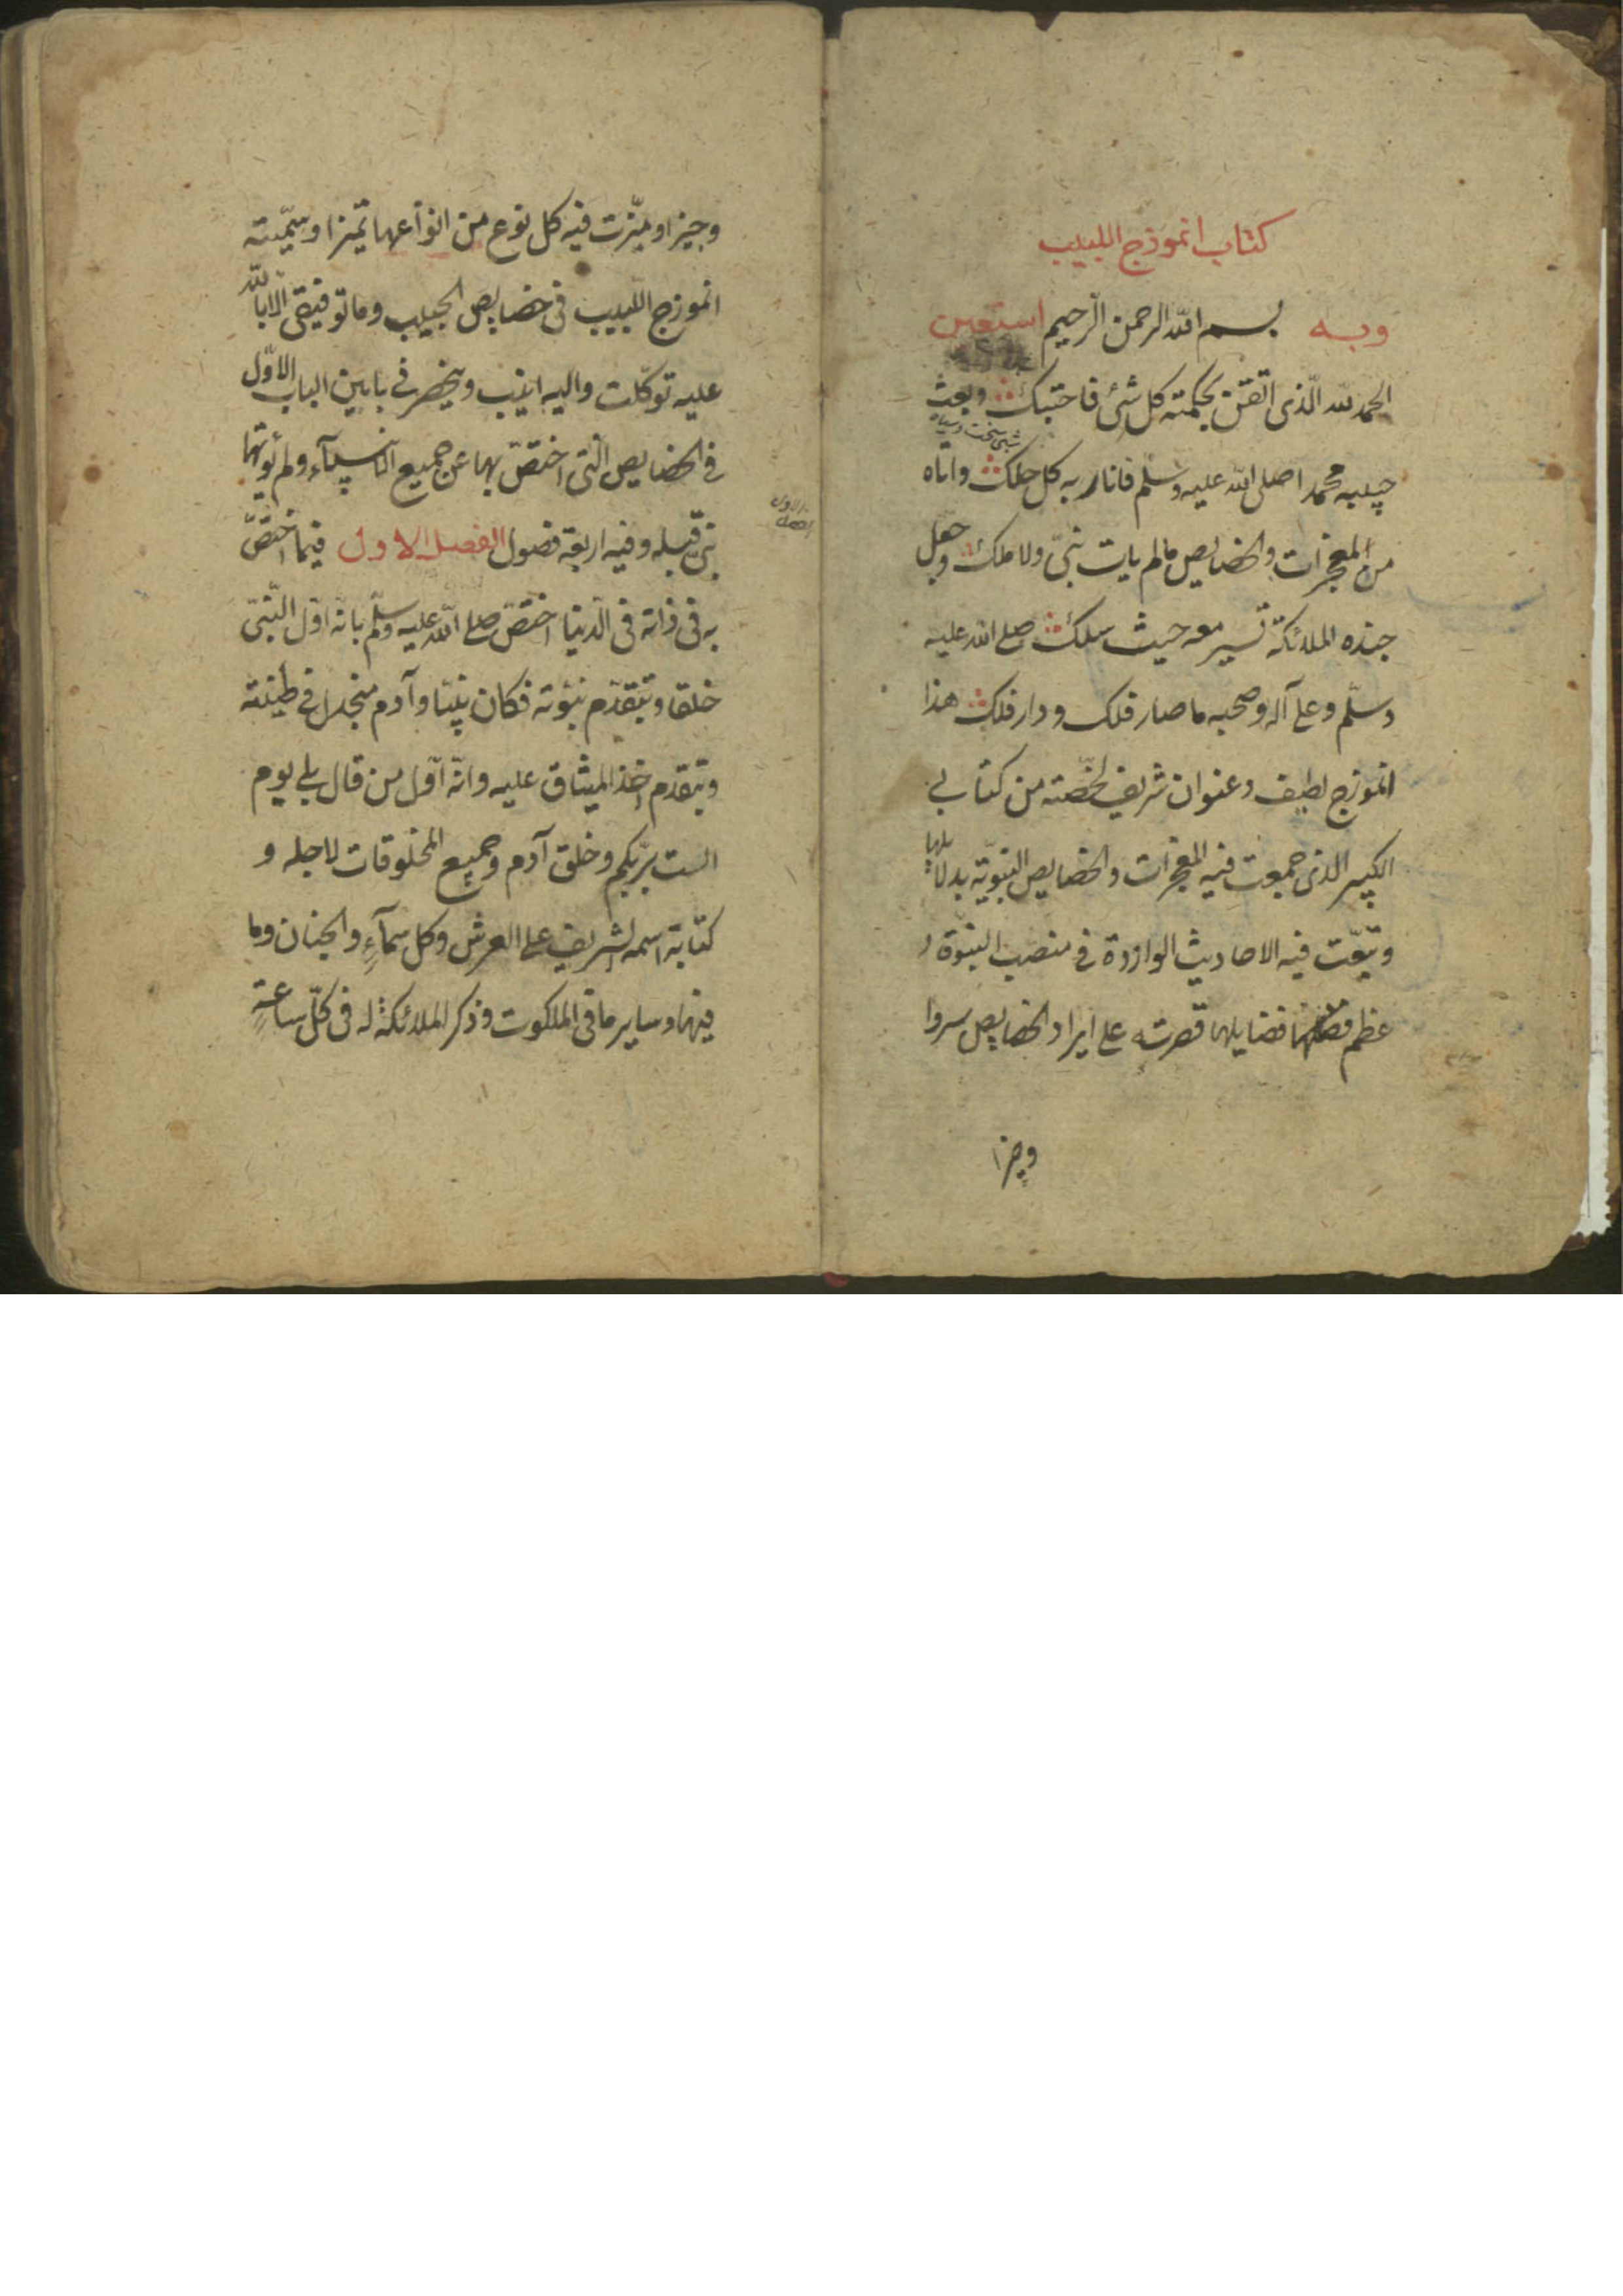 كتاب انموذج اللبيب
وبه بسم الله الرحمن الرحيم استعين
الحمد لله الّذى اتقن بحكمته كل شئ فاحتبك وبعث
شبى سخت وسياه
حبيبه محمدا صلى الله عليه وسلّم فانار به كل حلك واتاه
من المعجزات والخصايص مالم يات نبىّ ولا ملك وجعل
جنده الملائكة تسير معه حيث سلك صلى الله عليه
وسلّم وعلى آله وصحبه ما صار فلك ودار فلك هذا
انموزج لطيف وعنوان شريف لخّصته من كتابى
الكبير الذى جمعت فيه المعجزات والخصايص النبويّة بدلايلها
وتتبّعت فيه الاحاديث الواردة فى منصب النبوّة و
عظم فضايلها قصرته على ايراد الخصايص سروا
وجيزا
وجيزا وميّزت فيه كل نوع من انواعها تميزا وسمّيته
انموزج اللّبيب فى خصايص الحبيب وما توفيقى الا بالله
عليه توكّلت واليه انيب وينحصر فى بابين الباب الاوّل
فى الخصايص الّتى اختصّ بها عن جميع الانبيآء ولم يؤتها
نبىّ قبله وفيه اربعة فصول الفصل الاول فيما اختصّ
به فى ذاته فى الدّنيا اختصّ صلى اللّه عليه وسلّم بانّه اوّل النّبىّ
خلقا وبتقدّم نبوّته فكان نبيّا وآدم منجدل فى طينته
وبتقدّم اخذ الميثاق عليه وانّه اوّل من قال بلى يوم
الست بربّكم وخلق آدم وجميع المخلوقات لاجله و
كتابة اسمه الشريف على العرش وكل سمآءٍ والجنان وما
فيها وساير ما فى الملكوت وذكر الملائكة له فى كلّ ساعةٍ